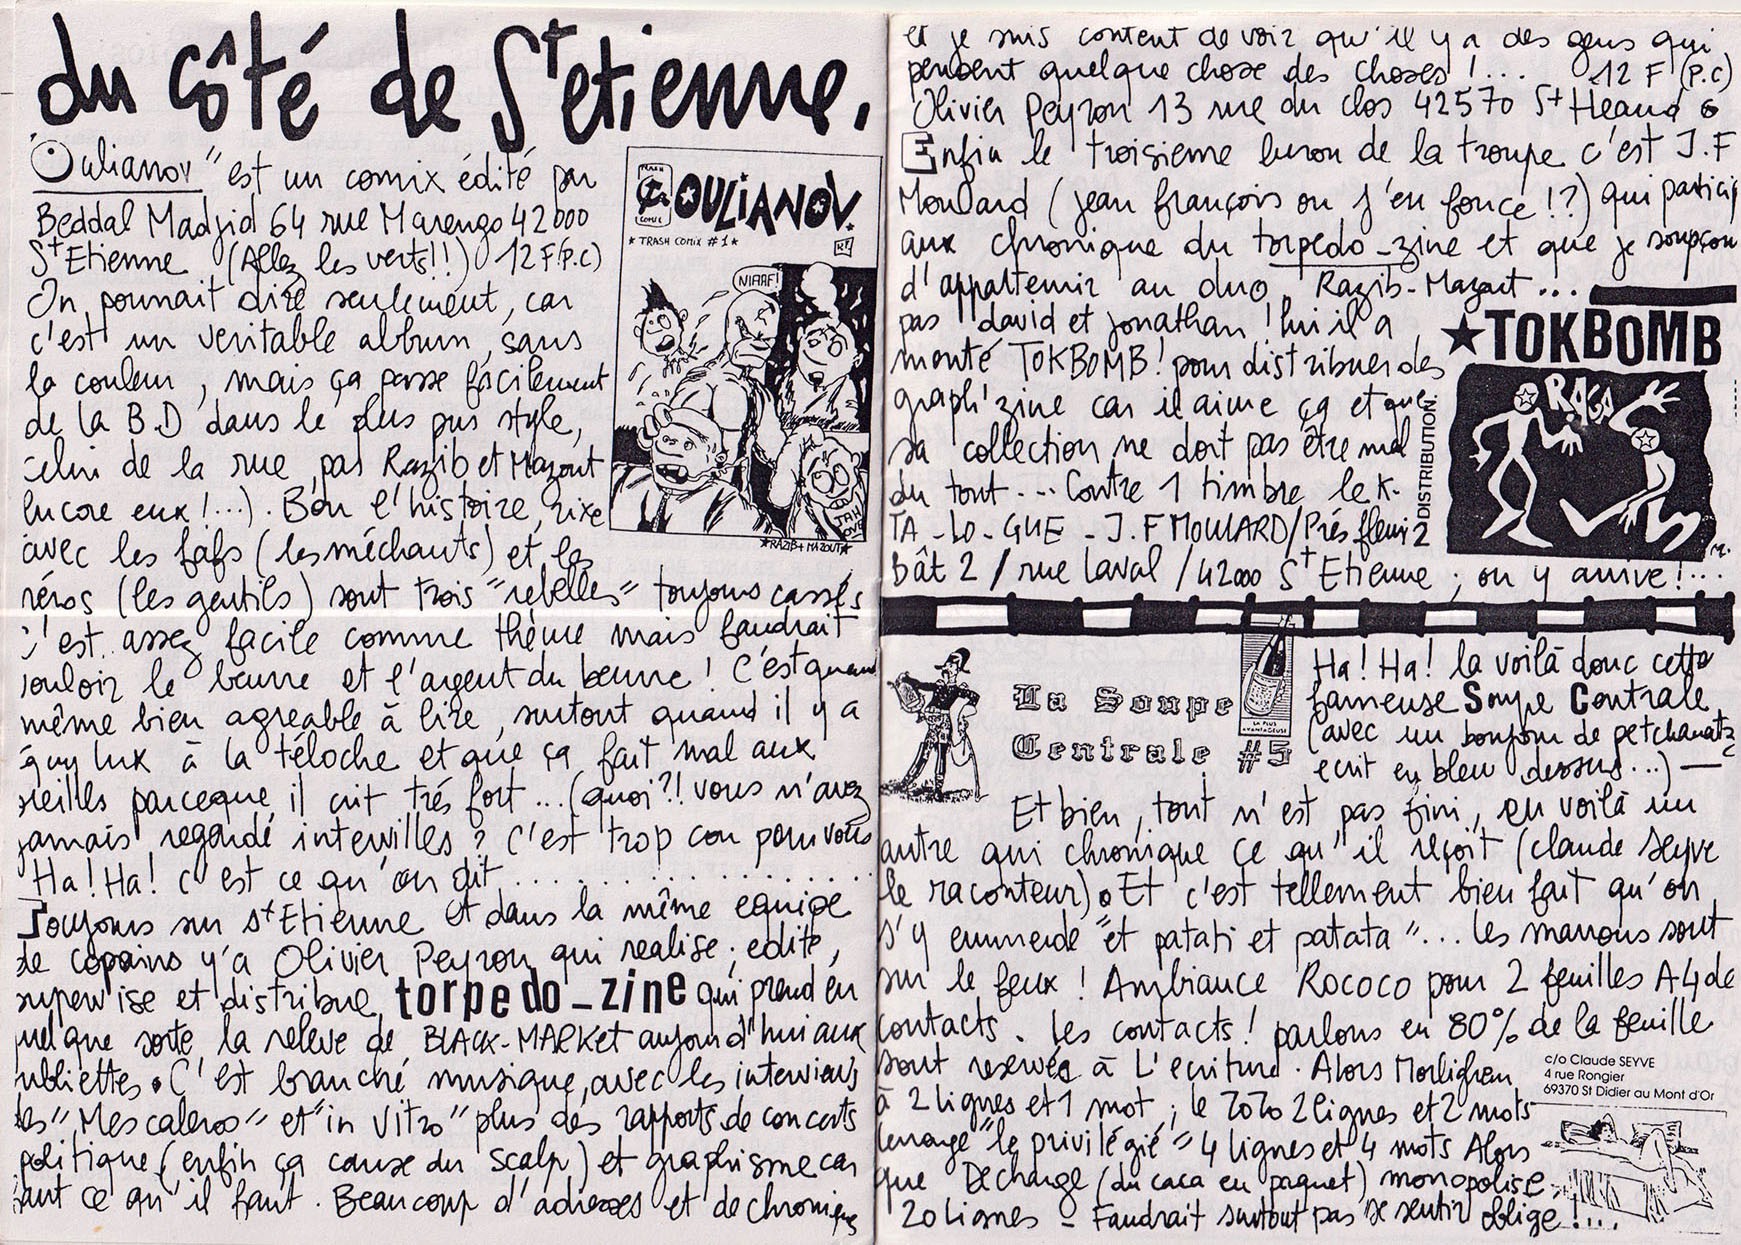 du côté de St etienne.
"Oulianov" est un comix édité par
Beddal Madjid 64 rue Marengo 42000
St Etienne (Allez les verts!!) 12 F(P.C)
On pourrait dire seulement, car
c'est un veritable album, sans
la couleur, mais ça passe facilement
de la B.D dans le plus pur style,
celui de la rue, pas Razib et Mazout
encore eux!...). Bon l'histoire, rixe
avec les fafs (les méchants) et les
héros (les gentils) sont trois "rebelles" toujours cassés
c'est assez facile comme thème mais faudrait
vouloir le beurre et l'argent du beurre! C'est quand
même bien agreable à lire, surtout quand il y a
guy lux à la téloche et que ça fait mal aux
oreilles parceque il crit trés fort...(quoi?!! vous n'avez
jamais regardé intervilles? C'est trop con pour vous
Ha! Ha! c'est ce qu'on dit..................
Toujours sur St Etienne et dans la même equipe
de copains y'a Olivier Peyron qui realise, edite,
superwise et distribue torpedo_zine qui prend en
quelque sorte la releve de BLACK-MARKET aujourd'hui aux
oubliettes. C'est branché musique, avec les interviews
des "Mescaleros" et "in Vitro" plus des rapports de concerts
politique (enfin ça cause du scalp) et graphisme car
faut ce qu'il faut. Beaucoup d'adresses et de chroniques
TRASH COMIX
OULIANOV.
★ TRASH COMIX #1★
RF
NIARF!
JAH LOVE
★RAZIB+MAZOUT★
et je suis content de voir qu'il y a des gens qui
pensent quelque chose des choses!... 12 F (P.C)
Olivier Peyron 13 rue du clos 42570 St Heand
Enfin le troisieme luron de la troupe c'est J.F
Moulard (jean françois ou j'en fonce!?) qui particip
aux chronique du torpedo_zine et que je soupçon
d'appartenir au duo Razib-Mazout...
pas david et jonathan! lui il a
monté TOKBOMB! pour distribuer des
graph'zine car il aime ça et que
sa collection ne doit pas être mal
du tout... Contre 1 timbre le K-
TA-LO-GUE - J.F MOULARD/Prés fleuri 2
bât 2 / rue Laval / 42000 St Etienne ; on y arrive!...
★TOKBOMB
DISTRIBUTION.
RAGA
M.
La Soupe
Centrale #5
LA PLUS
AVANTAGEUSE
Ha! Ha! la voilà donc cette
fameuse Soupe Centrale
(avec un bonjour de petchanatz
ecrit en bleu dessus...) —
Et bien, tout n'est pas fini, en voilà un
autre qui chronique ce qu'il reçoit (claude Seyve
le raconteur). Et c'est tellement bien fait qu'on
s'y emmerde "et patati et patata"... les marrons sont
sur le feux! Ambiance Rococo pour 2 feuilles A4 de
contacts. Les contacts! parlons en 80% de la feuille
sont reservée à L'ecriture. Alors Morlighem
à 2 lignes et 1 mot ; le ZoZo 2 lignes et 2 mots
"le privilégié" 4 lignes et 4 mots Alors
que Décharge (du caca en paquet) monopolise
20 lignes - Faudrait surtout pas se sentir oblige!...
c/o Claude SEYVE
4 rue Rongier
69370 St Didier au Mont d'Or